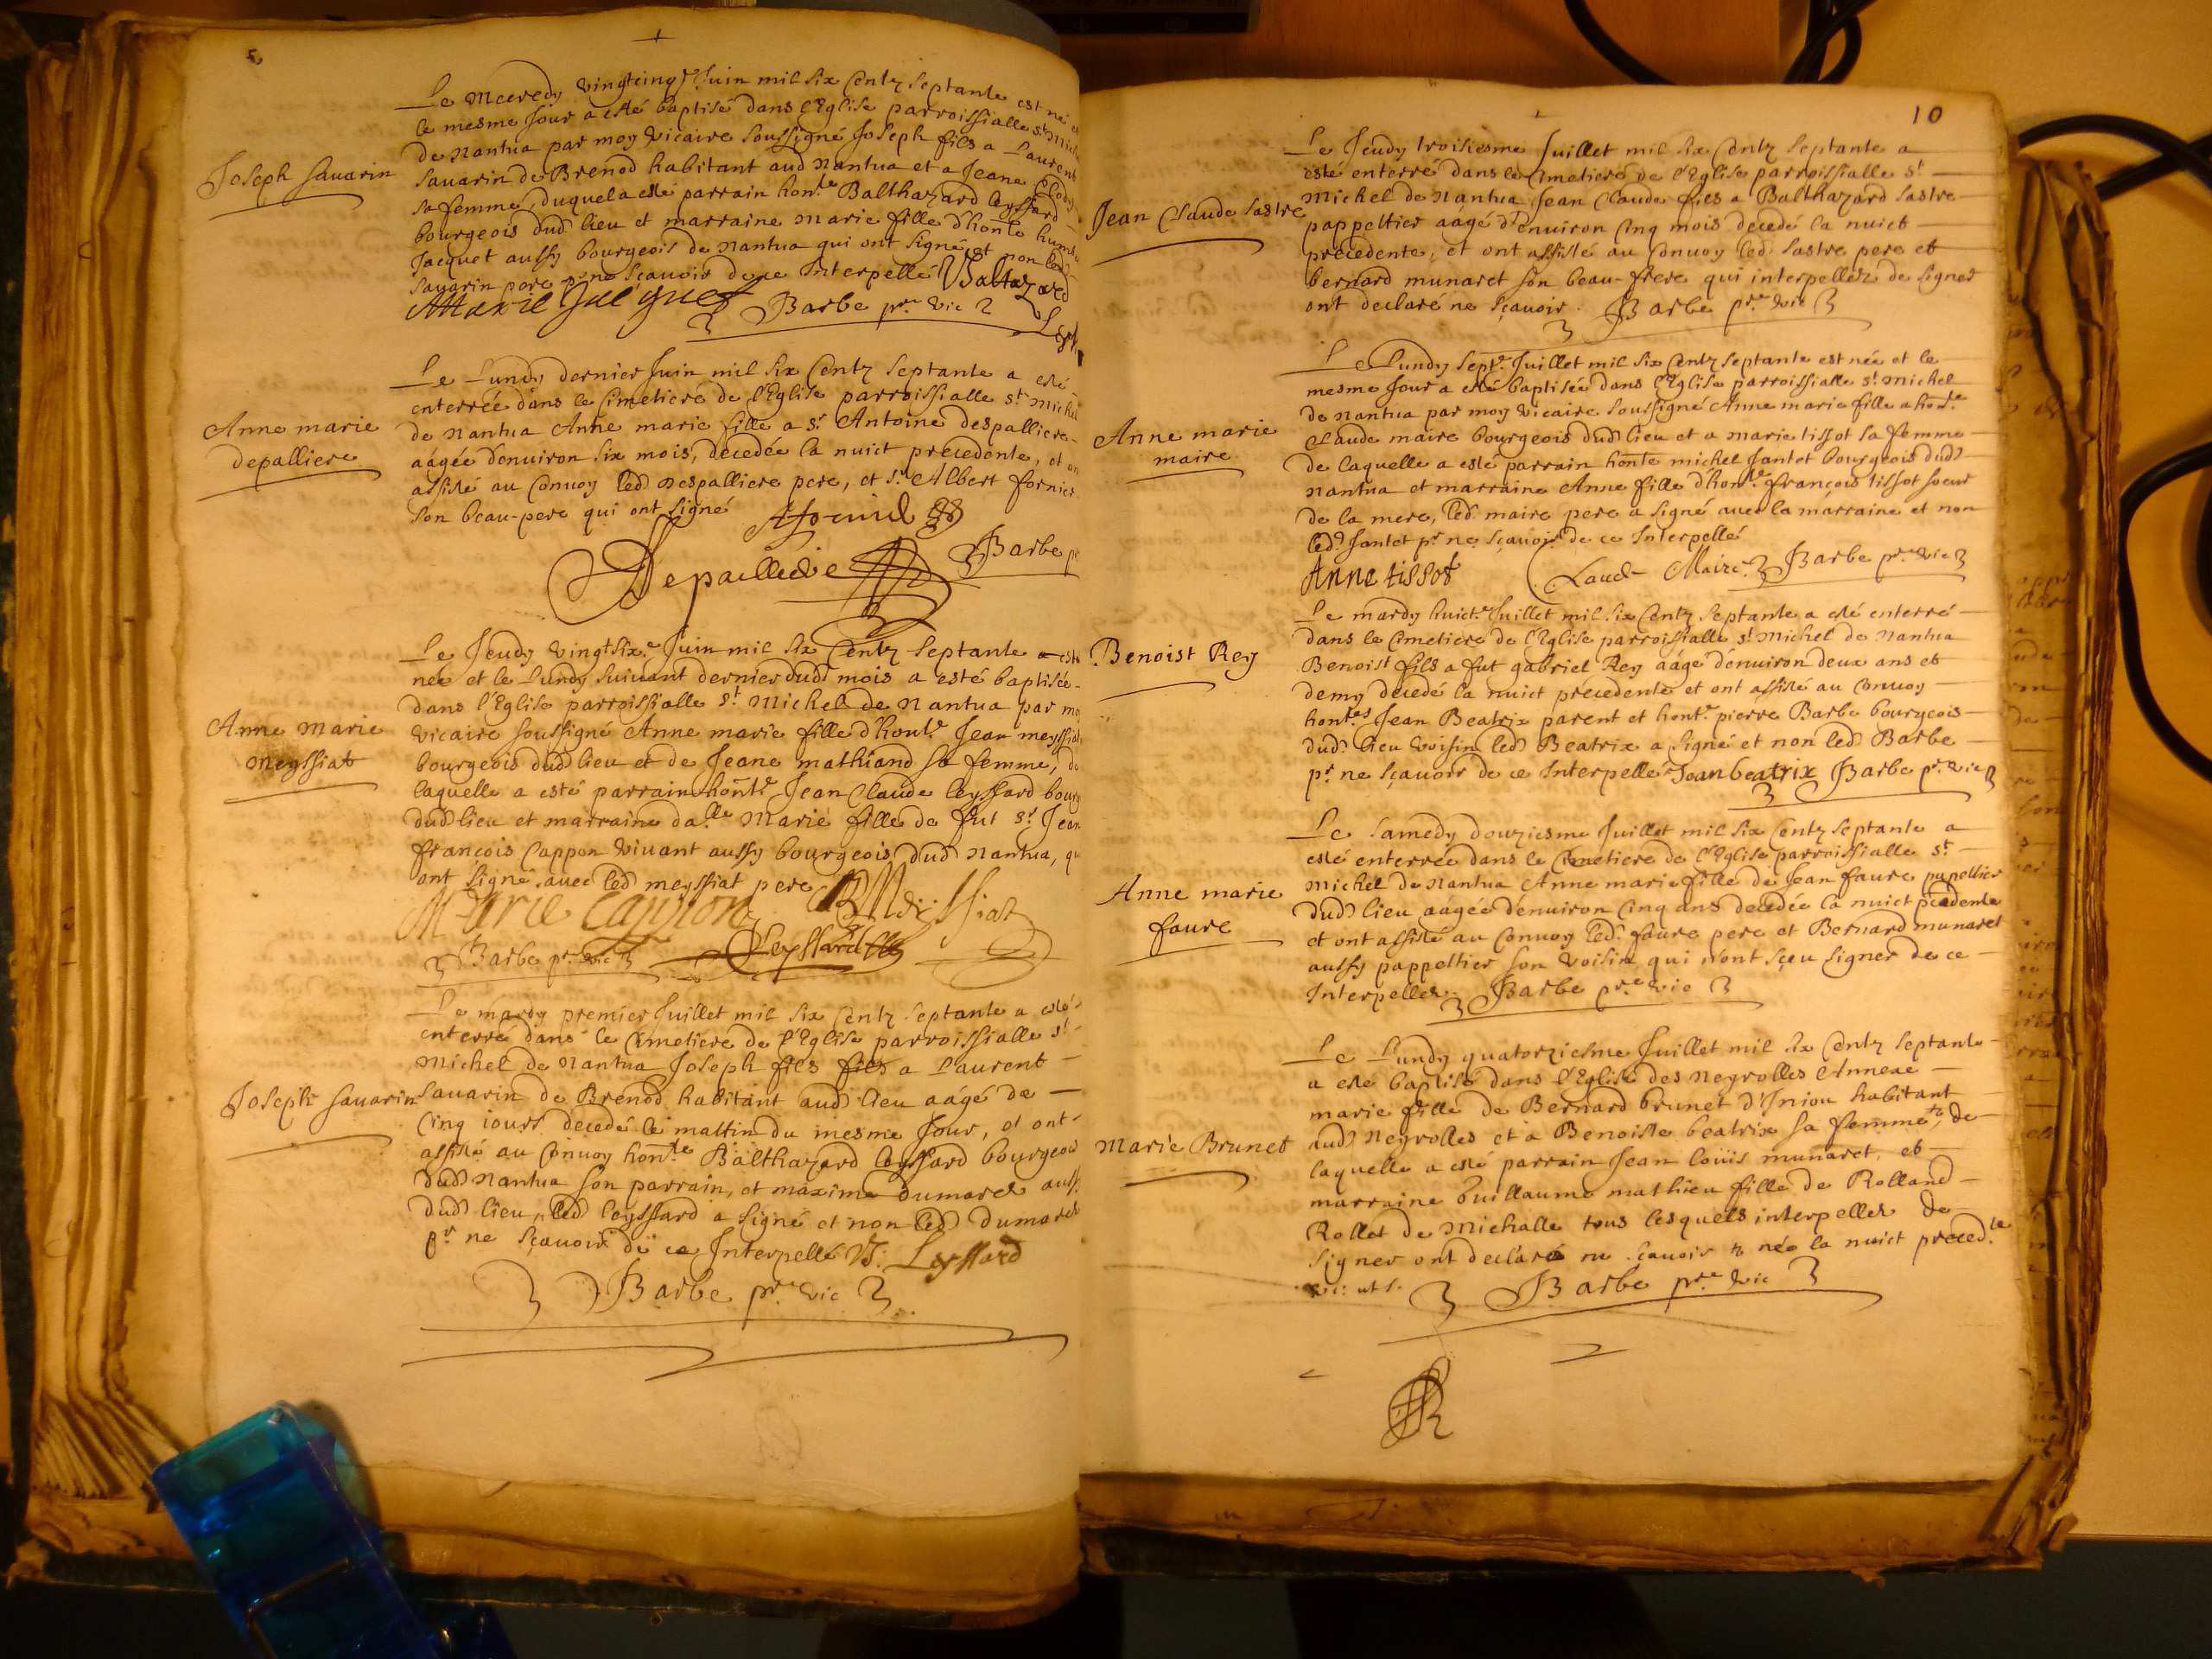 Le Mecredy vingtcinq.e Juin mil six Centz septante est né et
le mesme Jour a esté baptisé dans l'Eglise parroissialle st. Michel
de Nantua par moy vicaire soussigné Joseph fils a Laurent
Joseph Sauarin
Sauarin de Brenod habitant aud Nantua et a Jeane
sa femme, duquel a esté parrain hon.le Balthazard leyssard
bourgeois dud lieu et marraine Marie fille d'hon.le
Jacquet aussy bourgeois de Nantua qui ont signé et non led
Sauarin pere pr ne sçauoir de ce Interpellé Baltazard
Marie Jacquet Barbe pr.e vic
Le Lundy dernier Juin mil six Centz septante a esté
enterrée dans le Cimetiere de l'Eglise parroissialle st. Michel
Anne marie
depalliere
de Nantua Anne marie fille a sr. Antoine despalliere
aagée d'enuiron six mois, decedée la nuict precedente, et on
assisté au Conuoy led despalliere pere, et sr. Albert fornier
son beau-pere qui ont signé
Depailliere Barbe pr
Le Jeudy vingtsix.e Juin mil six Centz septante a esté
née et le Lundy suiuant dernier dud mois a esté baptisée
dans l'Eglise parroissialle st. Michel de Nantua par mo
Anne Marie
Meyssiat
vicaire soussigné Anne marie fille d'hon.le Jean meyssiat
bourgeois dud lieu et de Jeane mathiand sa femme, de
laquelle a esté parrain hon.le Jean Claude leyssard bourg
dud lieu et marraine da.lle Marie fille de fut sr. Jean
françois Cappon viuant aussy bourgeois dud Nantua, qu
ont signé auec led meyssiat pere
Marie Cappon Meyssiat
Barbe pr. vic Leyssard
Le mardy premier Juillet mil six Centz septante a esté
enterré dans le Cimetiere de l'Eglise parroissialle st.
Michel de Nantua Joseph fils fils a Laurent
Joseph Sauarin
Sauarin de Brenod habitant aud lieu aagé de
Cinq iours decedé le mattin du mesme Jour, et ont
assisté au Conuoy hon.le Balthazard leyssard bourgeois
dud Nantua son parrain, et maxime dumarest auss
dud lieu, led leyssard a signé et non led dumarest
pr ne sçauoir de ce Interpellé B. Leyssard
Barbe pr.e vic
10
Le Jeudy troisiesme Juillet mil six Centz septante a
esté enterré dans le Cimetiere de l'Eglise parroissialle st.
Jean Claude Sastre
Michel de Nantua Jean Claude fils a Balthazard Sastre
pappeltier aagé d'enuiron Cinq mois decedé la nuict
precedente, et ont assisté au Conuoy led. Sastre pere et
bernard munaret son beau-frere qui interpellez de signer
ont declaré ne sçauoir. Barbe pr.e vic
Le Lundy sept.e Juillet mil six Centz septante est née et le
mesme Jour a esté baptisée dans l'Eglise parroissialle st. Michel
de Nantua par moy vicaire soussigné Anne marie fille a hon.le
Anne marie
maire
Claude maire bourgeois dud lieu et a marie tissot sa femme
de laquelle a esté parrain honle michel Jantet bourgeois dud
Nantua et marraine Anne fille d'hon.le françois tissot soeur
de la mere, led. maire pere a signé auec la marraine et non
led. Jantet pr ne sçauoir de ce Interpellé
Anne tissot Claude Maire Barbe pr.e vic
Le mardy huict.e Juillet mil six Centz septante a esté enterré
dans le Cimetiere de l'Eglise parroissialle st. Michel de Nantua
Benoist Rey
Benoist fils a fut gabriel Rey aagé d'enuiron deux ans et
demy decedé la nuict precedente et ont assisté au Conuoy
hon.les Jean Beatrix parent et hon.le pierre Barbe bourgeois
dud lieu voisin led Beatrix a signé et non led Barbe
pr ne sçauoir de ce Interpellé Jean beatrix Barbe pr.e vic
Le samedy douziesme Juillet mil six Centz septante a
esté enterrée dans le Cimetiere de l'Eglise parroissialle st.
Anne marie
faure
Michel de Nantua Anne marie fille de Jean faure papeltier
dud lieu aagée d'enuiron Cinq ans decedée la nuict pcedente
et ont assisté au Conuoy led. faure pere et Bernard munaret
aussy pappeltier son voisin, qui n'ont sçeu signer de ce
Interpellez. Barbe pr.e vic
Le Lundy quatorziesme Juillet mil six Centz septante
a esté baptisé dans l'Eglise des Neyrolles Annexe
marie fille de Bernard brunet d'Iniou habitant
Marie Brunet
aud Neyrolles et a Benoiste beatrix sa femme, de
laquelle a esté parrain Jean Loüis munaret, et
marraine Guillaume mathieu fille de Rolland
Rollet de Michalle tous lesquels interpellez de
signer ont declaré ne sçauoir née la nuict preced.te
Barbe pr.e vic